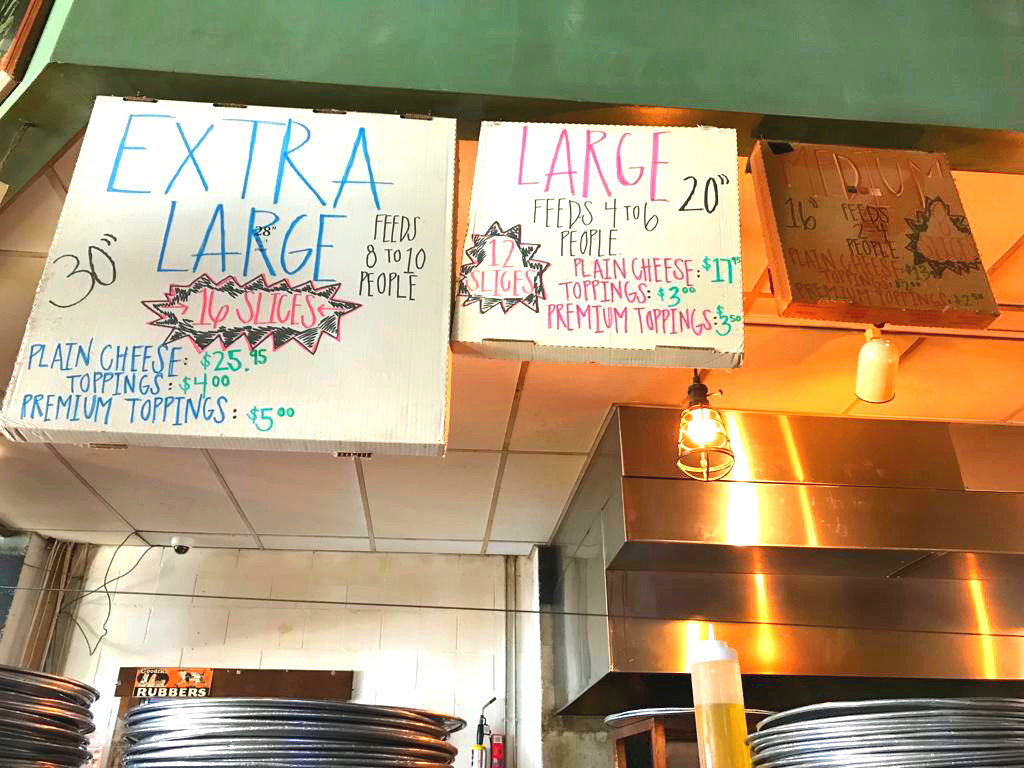 EXTRA
LARGE
28"
30"
FEEDS
8 TO 10
PEOPLE
16 SLICES
PLAIN CHEESE: $25.95
TOPPINGS: $4.00
PREMIUM TOPPINGS: $5.00
LARGE
20"
FEEDS 4 TO 6
PEOPLE.
12
SLICES
PLAIN CHEESE: $17.95
TOPPINGS: $3.00
PREMIUM TOPPINGS: $3.50
MEDIUM
16"
FEEDS
PEOPLE
8
SLICES
PLAIN CHEESE:
TOPPINGS:
PREMIUM TOPPINGS: $2.50
Goodrich
RUBBERS